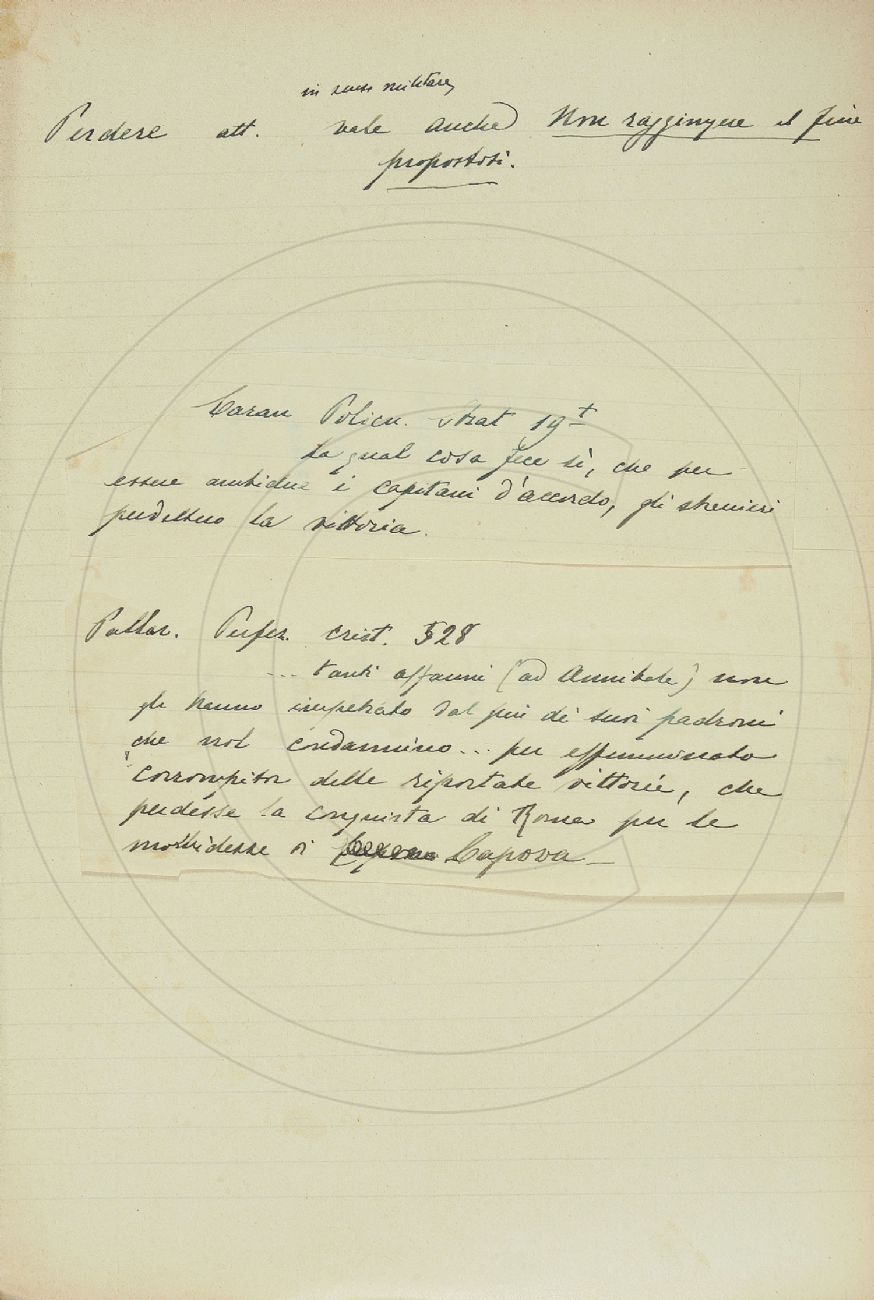 in senso militare,
Perdere att. vale anche Non raggiungere il fine
propostosi.
Caran Polien. Strat 19t
La qual cosa fece sì, che per
essere ambidue i capitani d'accordo, gli stranieri
perdettero la vittoria.
Pallav. Perfez. crist. 528
... tanti affanni (ad Annibale) non
gli hanno impetrato dal più de' suoi padroni
che nol condannino... per effemminato
corrompitor delle riportate vittorie, che
perdesse la conquista di Roma per le
morbidezze di Capova —